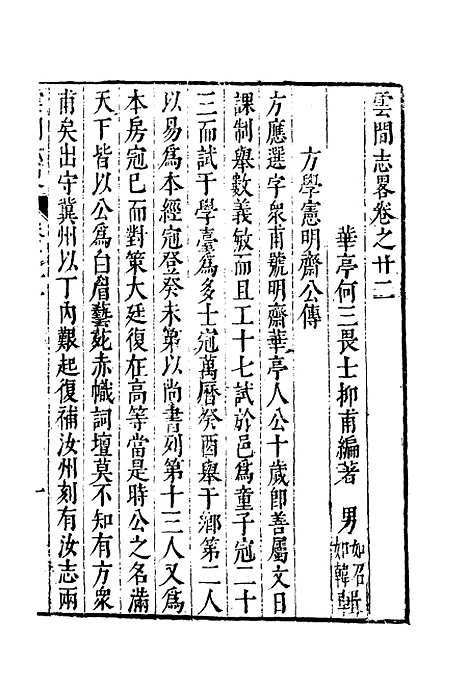 雲間志畧卷之廿二
華亭何三畏士抑甫編著 男如召如韓輯
方學憲明齋公傳
方應選字衆甫號明齋華亭人公十歲卽善屬文日
課制舉數義敏而且工十七試於邑爲童子冠二十
三而試于學臺爲多士冠萬曆癸酉舉于鄉第二人
以易爲本經冠登癸未第以尚書列第十三人又爲
本房冠巳而對策大廷復在高等當是時公之名滿
天下皆以公爲白眉藝苑赤幟詞壇莫不知有方衆
甫矣出守冀州以丁内艱起復補汝州刻有汝志兩